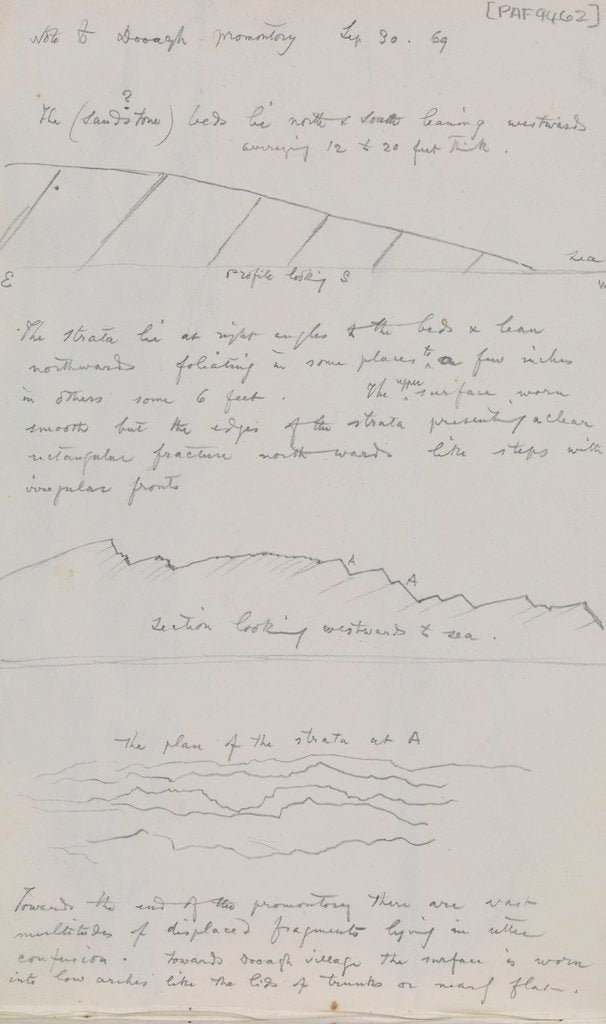 [PAF9462]
Note to Dooagh promontory Sep 30. 69
?
The (Sandstone) beds lie north & south leaning westwards
averaging 12 to 20 feet thick.
sea
E Profile looking S W
The strata lie at right angles to the beds & lean
northwards foliating in some places to a few inches
in others some 6 feet. The upper surface worn
smooth but the edges of the strata presenting a clear
rectangular fracture northwards like steps with
irregular fronts
A
A
Section looking westwards to sea.
The plan of the strata at A
Towards the end of the promontory there are vast
multitudes of displaced fragments lying in utter
confusion. Towards Dooagh village the surface is worn
into low arches like the lids of trunks or nearly flat.